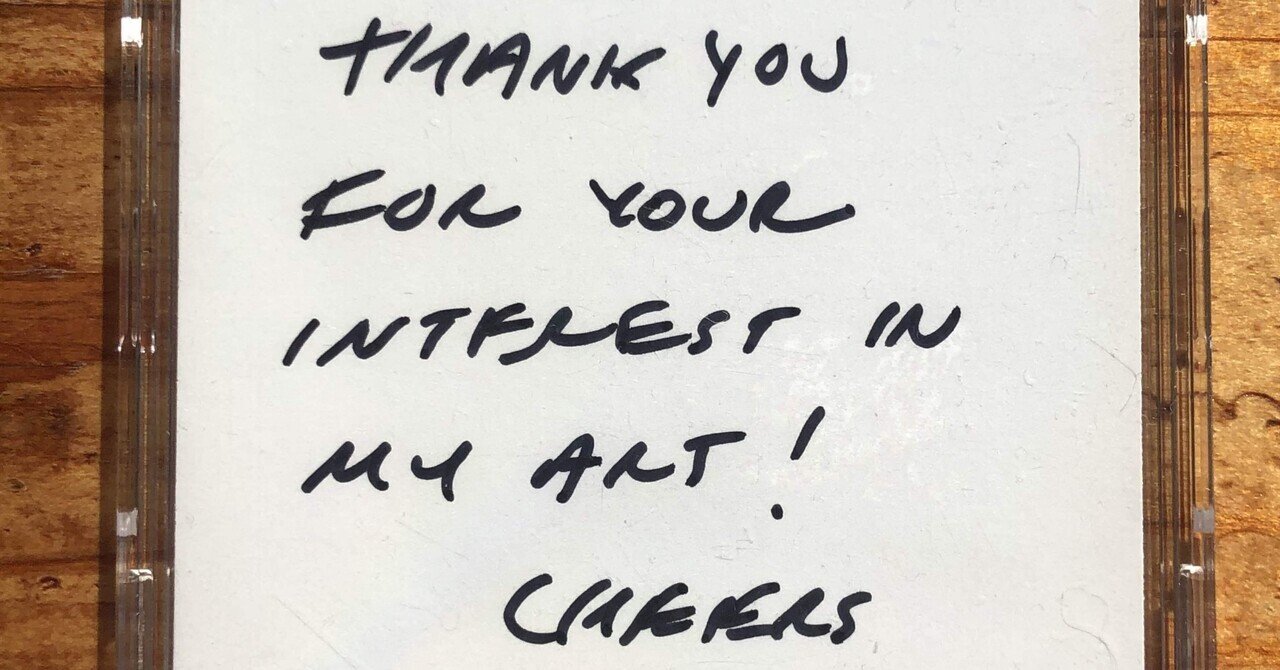 THANK YOU
FOR YOUR
INTEREST IN
MY ART!
CHEERS